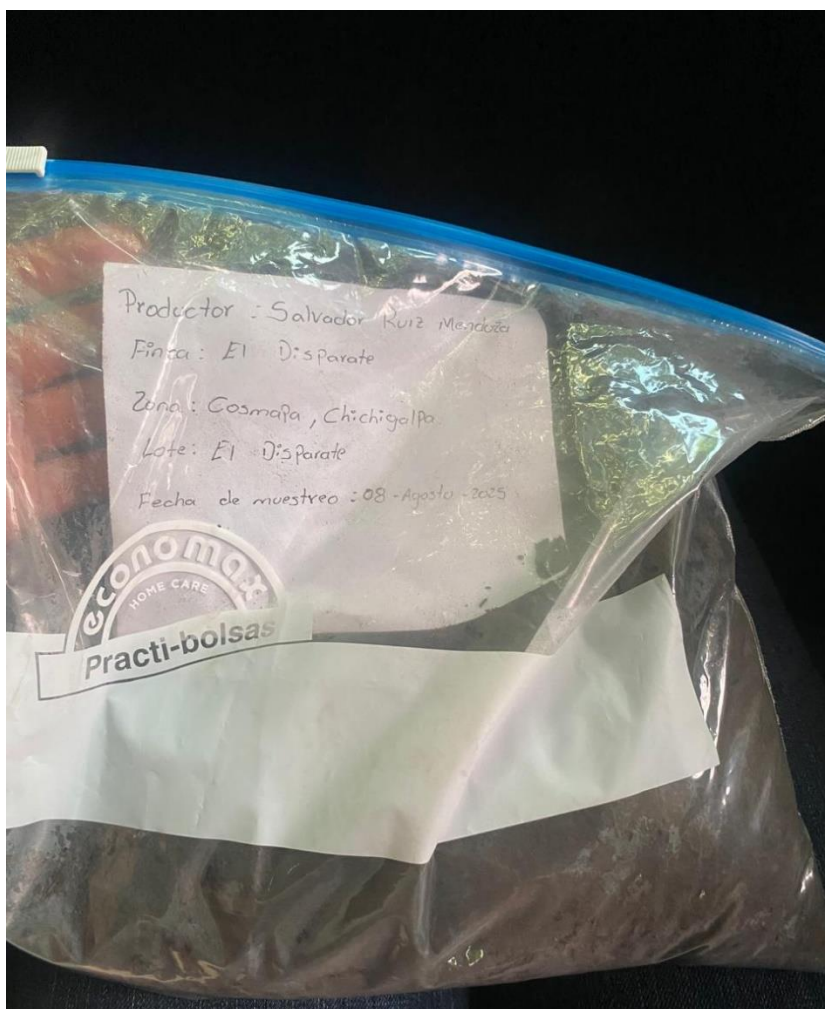 Productor : Salvador Ruiz Mendoza
Finca : El Disparate
Zona : Cosmapa, Chichigalpa
Lote : El Disparate
Fecha de muestreo : 08 - Agosto - 2025
economax
HOME CARE
Practi-bolsas